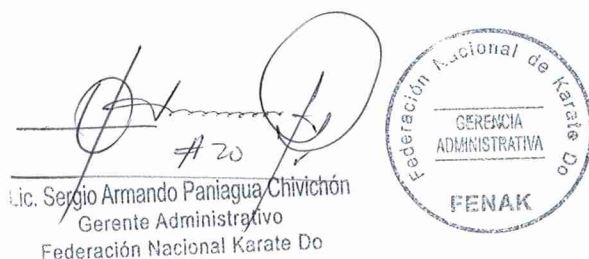 #20
Lic. Sergio Armando Paniagua Chivichón
Gerente Administrativo
Federación Nacional Karate Do
Federación Nacional de Karate Do
GERENCIA
ADMINISTRATIVA
FENAK